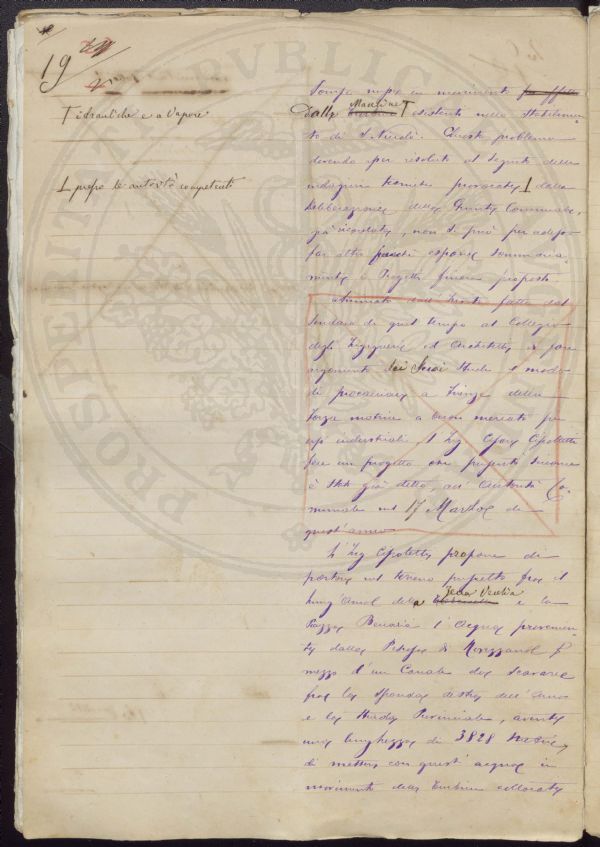 19
T idrauliche e a Vapore
⊥ presso le autorità competenti
Pompe messe in movimento per effetto
dalle Macchine T esistenti nello Stabilimen-
to di S. Niccolò. Questo problema
dovendo per resoluto al seguito delle
indagini tecniche provocate ⊥ dalla
Deliberazione della Giunta Comunale,
già ricordata, non si può per adesso
far altro che esporre sommaria
mente i Progetti finora proposti.
Animato dall'invito fatto dal
Sindaco di quel tempo al Collegio
degli Ingegneri ed Architetti di fare
argomento dei Suoi Studi il modo
di procacciare a Firenze della
forza motrice a buon mercato per
usi industriali, l'Ing Cipolletti
fece un progetto che presentò siccome
è stato già detto, all'Autorità Co-
munale nel 17 Marzo di
quest'anno
L'Ing Cipolletti propone di
portare nel terreno fra il
Lung'Arno della Zecca Vecchia e la
Piazza Beccaria l'acqua provenien-
te dalla Pescaia di Rovezzano p
mezzo d'un Canale da scavare
fra la sponda destra dell'Arno
e la Strada Provinciale, avente
una lunghezza di 3828 metri,
di mettere con quest'acqua in
movimento delle Turbine collocate
PROSPERITAS
PVBLICAE